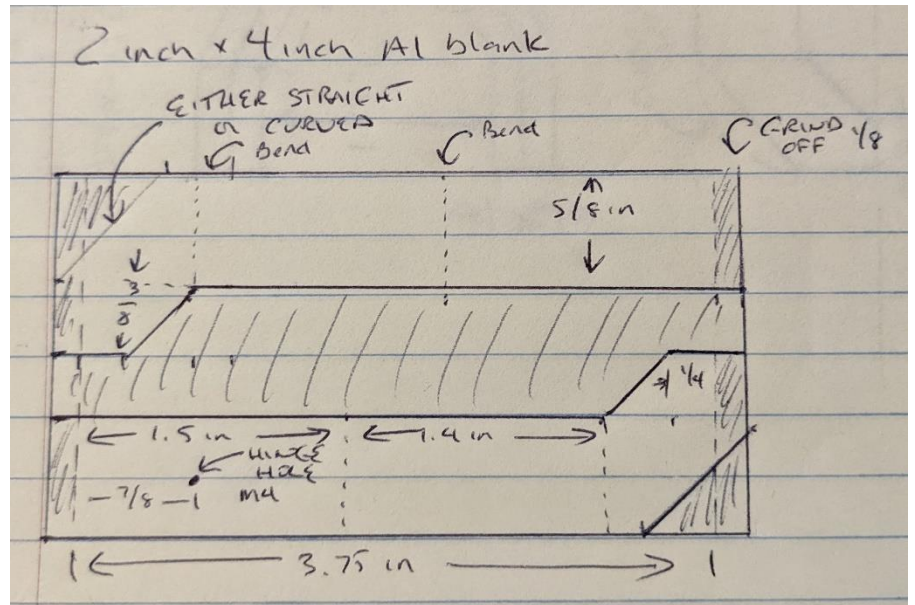 2 inch x 4 inch Al blank
EITHER STRAIGHT
or CURVED
Bend
Bend
GRIND 1/8
OFF
5/8 in
3/8
1/4
1.5 in
1.4 in
HINGE
HOLE
M4
7/8
3.75 in